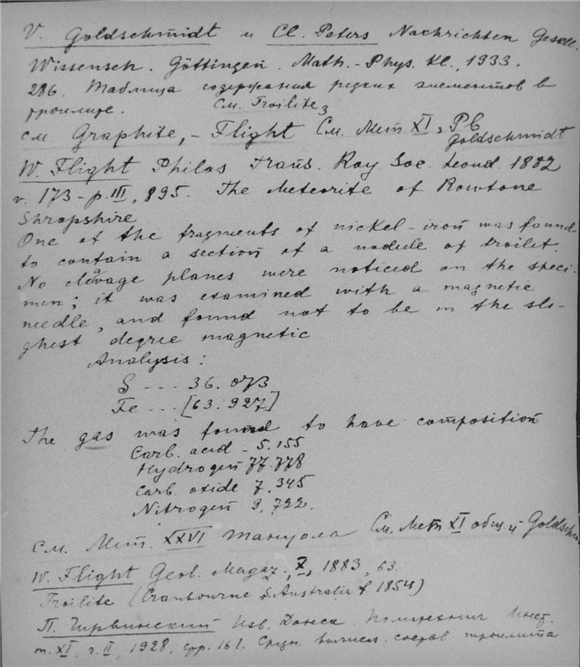 V. Goldschmidt и Cl. Peters Nachrichten Gesell.
Wissensch. Göttingen. Math.-Phys. Kl., 1933.
286. Таблица содержания редких элементов в
троилите. См. Troilite3
см. Graphite, - Flight См. Мет XI, Pb
Goldschmidt
W. Flight Philos Trans. Roy Soc. Lond 1882
v. 173 - p. III, 895. The Meteorite of Rowtone
Shropshire
One of the fragments of nickel-iron was found
to contain a section of a nodule of troilit.
No clevage planes were noticed on the speci-
men; it was examined with a magnetic
needle, and found not to be in the sli-
ghest degree magnetic
Analysis:
S ... 36.073
Fe ... [63.927]
The gas was found to have composition
Carb. acid - 5.155
Hydrogen 77.778
Carb oxide 7.345
Nitrogen 9,722.
См. Мет. XXVI См. Мет XI общ. ч. Goldschm
W. Flight Geol. Magaz., X, 1883, 63.
Troilite (Cranbourne Australia 1854)
П. Чирвинский Изв. Донск. Политехнич Инст.
т. XI, ч. II, 1928, стр. 161. Средн. вычисл. состав троилита